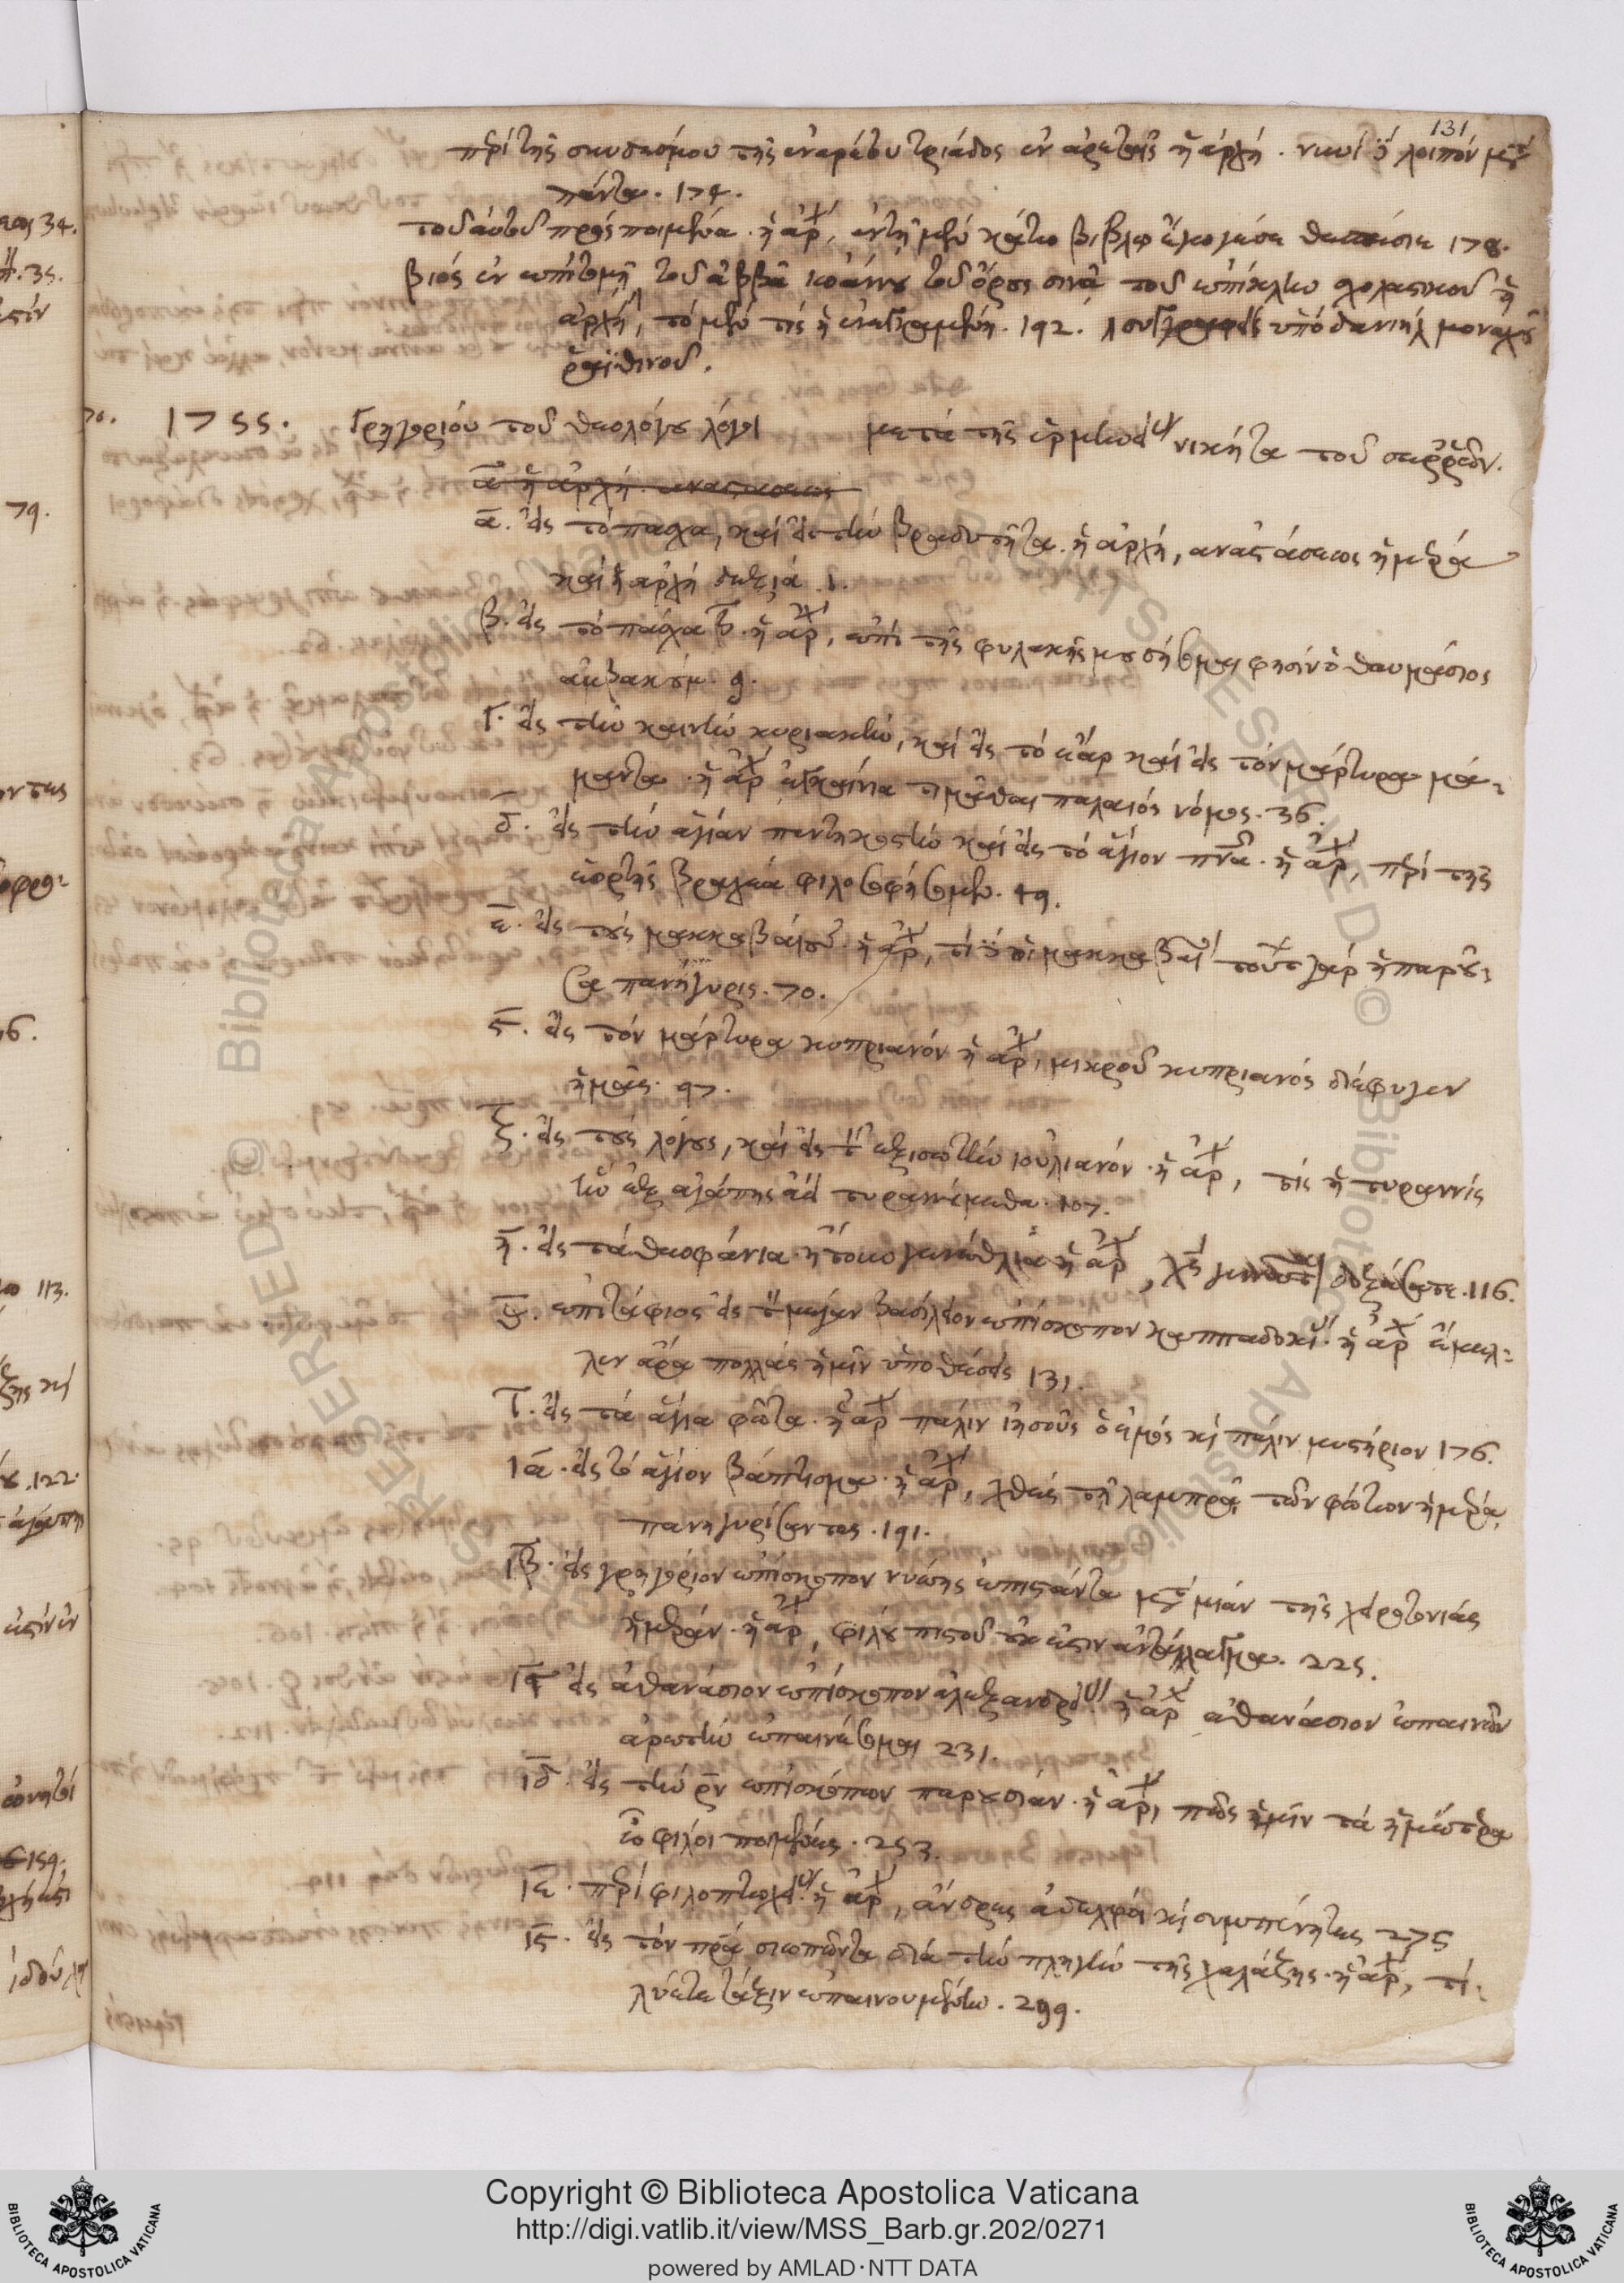 131
περὶ τῆς συνδέσμου τῆς ἐναρέτου τριάδος ἐν ἀρεταῖς ἡ ἀρχή. νυνὶ δὲ λοιπὸν μετὰ
πάντα. 174.
τοῦ αὐτοῦ πρὸς ποιμένα. ἡ ἀρχ, ἐν τῇ μὲν κάτω βίβλῳ 178.
βίος ἐν ἐπιτομῇ τοῦ ἀββᾶ ἰωάννου τοῦ ὄρους σινᾶ τοῦ ἐπίκλην σχολαστικοῦ ἡ
ἀρχή, τὸ μὲν τίς ἡ ἐνεγκαμένη. 192. συγγραφεὶς ὑπὸ δανιὴλ μοναχοῦ
ῥαϊθινοῦ.
1755. Γρηγορίου τοῦ θεολόγου λόγοι μετὰ τῆς ἑρμηνείας νικήτα τοῦ σερρῶν.
α ἡ ἀρχή. ἀναστάσεως
α. εἰς τὸ πάσχα, καὶ εἰς τὴν βραδυτῆτα. ἡ ἀρχή, ἀναστάσεως ἡμέρα
καὶ ἡ ἀρχὴ δεξιά 1.
β. εἰς τὸ πάσχα β. ἡ ἀρχ, ἐπὶ τῆς φυλακῆς μου στήσομαι φησὶν ὁ θαυμάσιος
ἀμβακούμ. 9.
Γ. εἰς τὴν καινὴν κυριακὴν, καὶ εἰς τὸ ἔαρ καὶ εἰς τὸν μάρτυρα μά-
μαντα. ἡ ἀρχ ἐγκαίνια τιμᾶσθαι παλαιὸς νόμος. 36.
δ. εἰς τὴν ἁγίαν πεντηκοστὴν καὶ εἰς τὸ ἅγιον πνα. ἡ ἀρχ, περὶ τῆς
ἑορτῆς βραχέα φιλοσοφήσωμεν. 49.
ε. εἰς τοὺς μακκαβαίους. ἡ ἀρχ, τί δὲ οἱ μακκαβαῖοι τούτων γὰρ ἡ παροῦ-
σα πανήγυρις. 70.
ϛ. εἰς τὸν μάρτυρα κυπριανὸν ἡ ἀρχ, μικροῦ κυπριανὸς διέφυγεν
ἡμᾶς. 97.
ζ. εἰς τοὺς λόγους, καὶ εἰς τὸν ἐξισωτὴν ἰουλιανόν. ἡ ἀρχ, τίς ἡ τυραννίς
ἣν ἐξ ἀγάπης ἀεὶ τυραννούμεθα. 107.
η. εἰς τὰ θεοφάνια. ἤτοι γενέθλια ἡ ἀρχ, χς γεννᾶται δοξάσατε. 116.
θ. ἐπιτάφιος εἰς τὸν μέγαν βασίλειον ἐπίσκοπον καππαδοκίας. ἡ ἀρχ ἔμελ-
λεν ἄρα πολλὰς ἡμῖν ὑποθέσεις 131.
Ι. εἰς τὰ ἅγια φῶτα. ἡ ἀρχ πάλιν ἰησοῦς ὁ ἐμὸς καὶ πάλιν μυστήριον 176.
ια. εἰς τὸ ἅγιον βάπτισμα. ἡ ἀρχ, χθὲς τῇ λαμπρᾷ τῶν φώτων ἡμέρᾳ
πανηγυρίσαντες. 191.
ιβ. εἰς γρηγόριον ἐπίσκοπον νύσσης ἐπιστάντα μετὰ μίαν τῆς χειροτονίας
ἡμέραν. ἡ ἀρχ, φίλου πιστοῦ οὐκ ἔστιν ἀντάλλαγμα. 225.
ιγ εἰς ἀθανάσιον ἐπίσκοπον ἀλεξανδρείας ἡ ἀρχ ἀθανάσιον ἐπαινῶν
ἀρετὴν ἐπαινέσομαι 231.
ιδ. εἰς τὴν ρν ἐπισκόπων παρουσίαν. ἡ ἀρχ, πῶς ἡμῖν τὰ ἡμέτερα
ὦ φίλοι ποιμένες. 253.
ιε. περὶ φιλοπτωχείας. ἡ ἀρχ, ἄνδρες ἀδελφοὶ καὶ συμπένητες 275
ιϛ. εἰς τὸν πρα σιωπῶντα διὰ τὴν πληγὴν τῆς χαλάζης. ἡ ἀρχ, τί
λύετε τάξιν ἐπαινουμένην. 299.
Copyright © Biblioteca Apostolica Vaticana
http://digi.vatlib.it/view/MSS_Barb.gr.202/0271
powered by AMLAD·NTT DATA